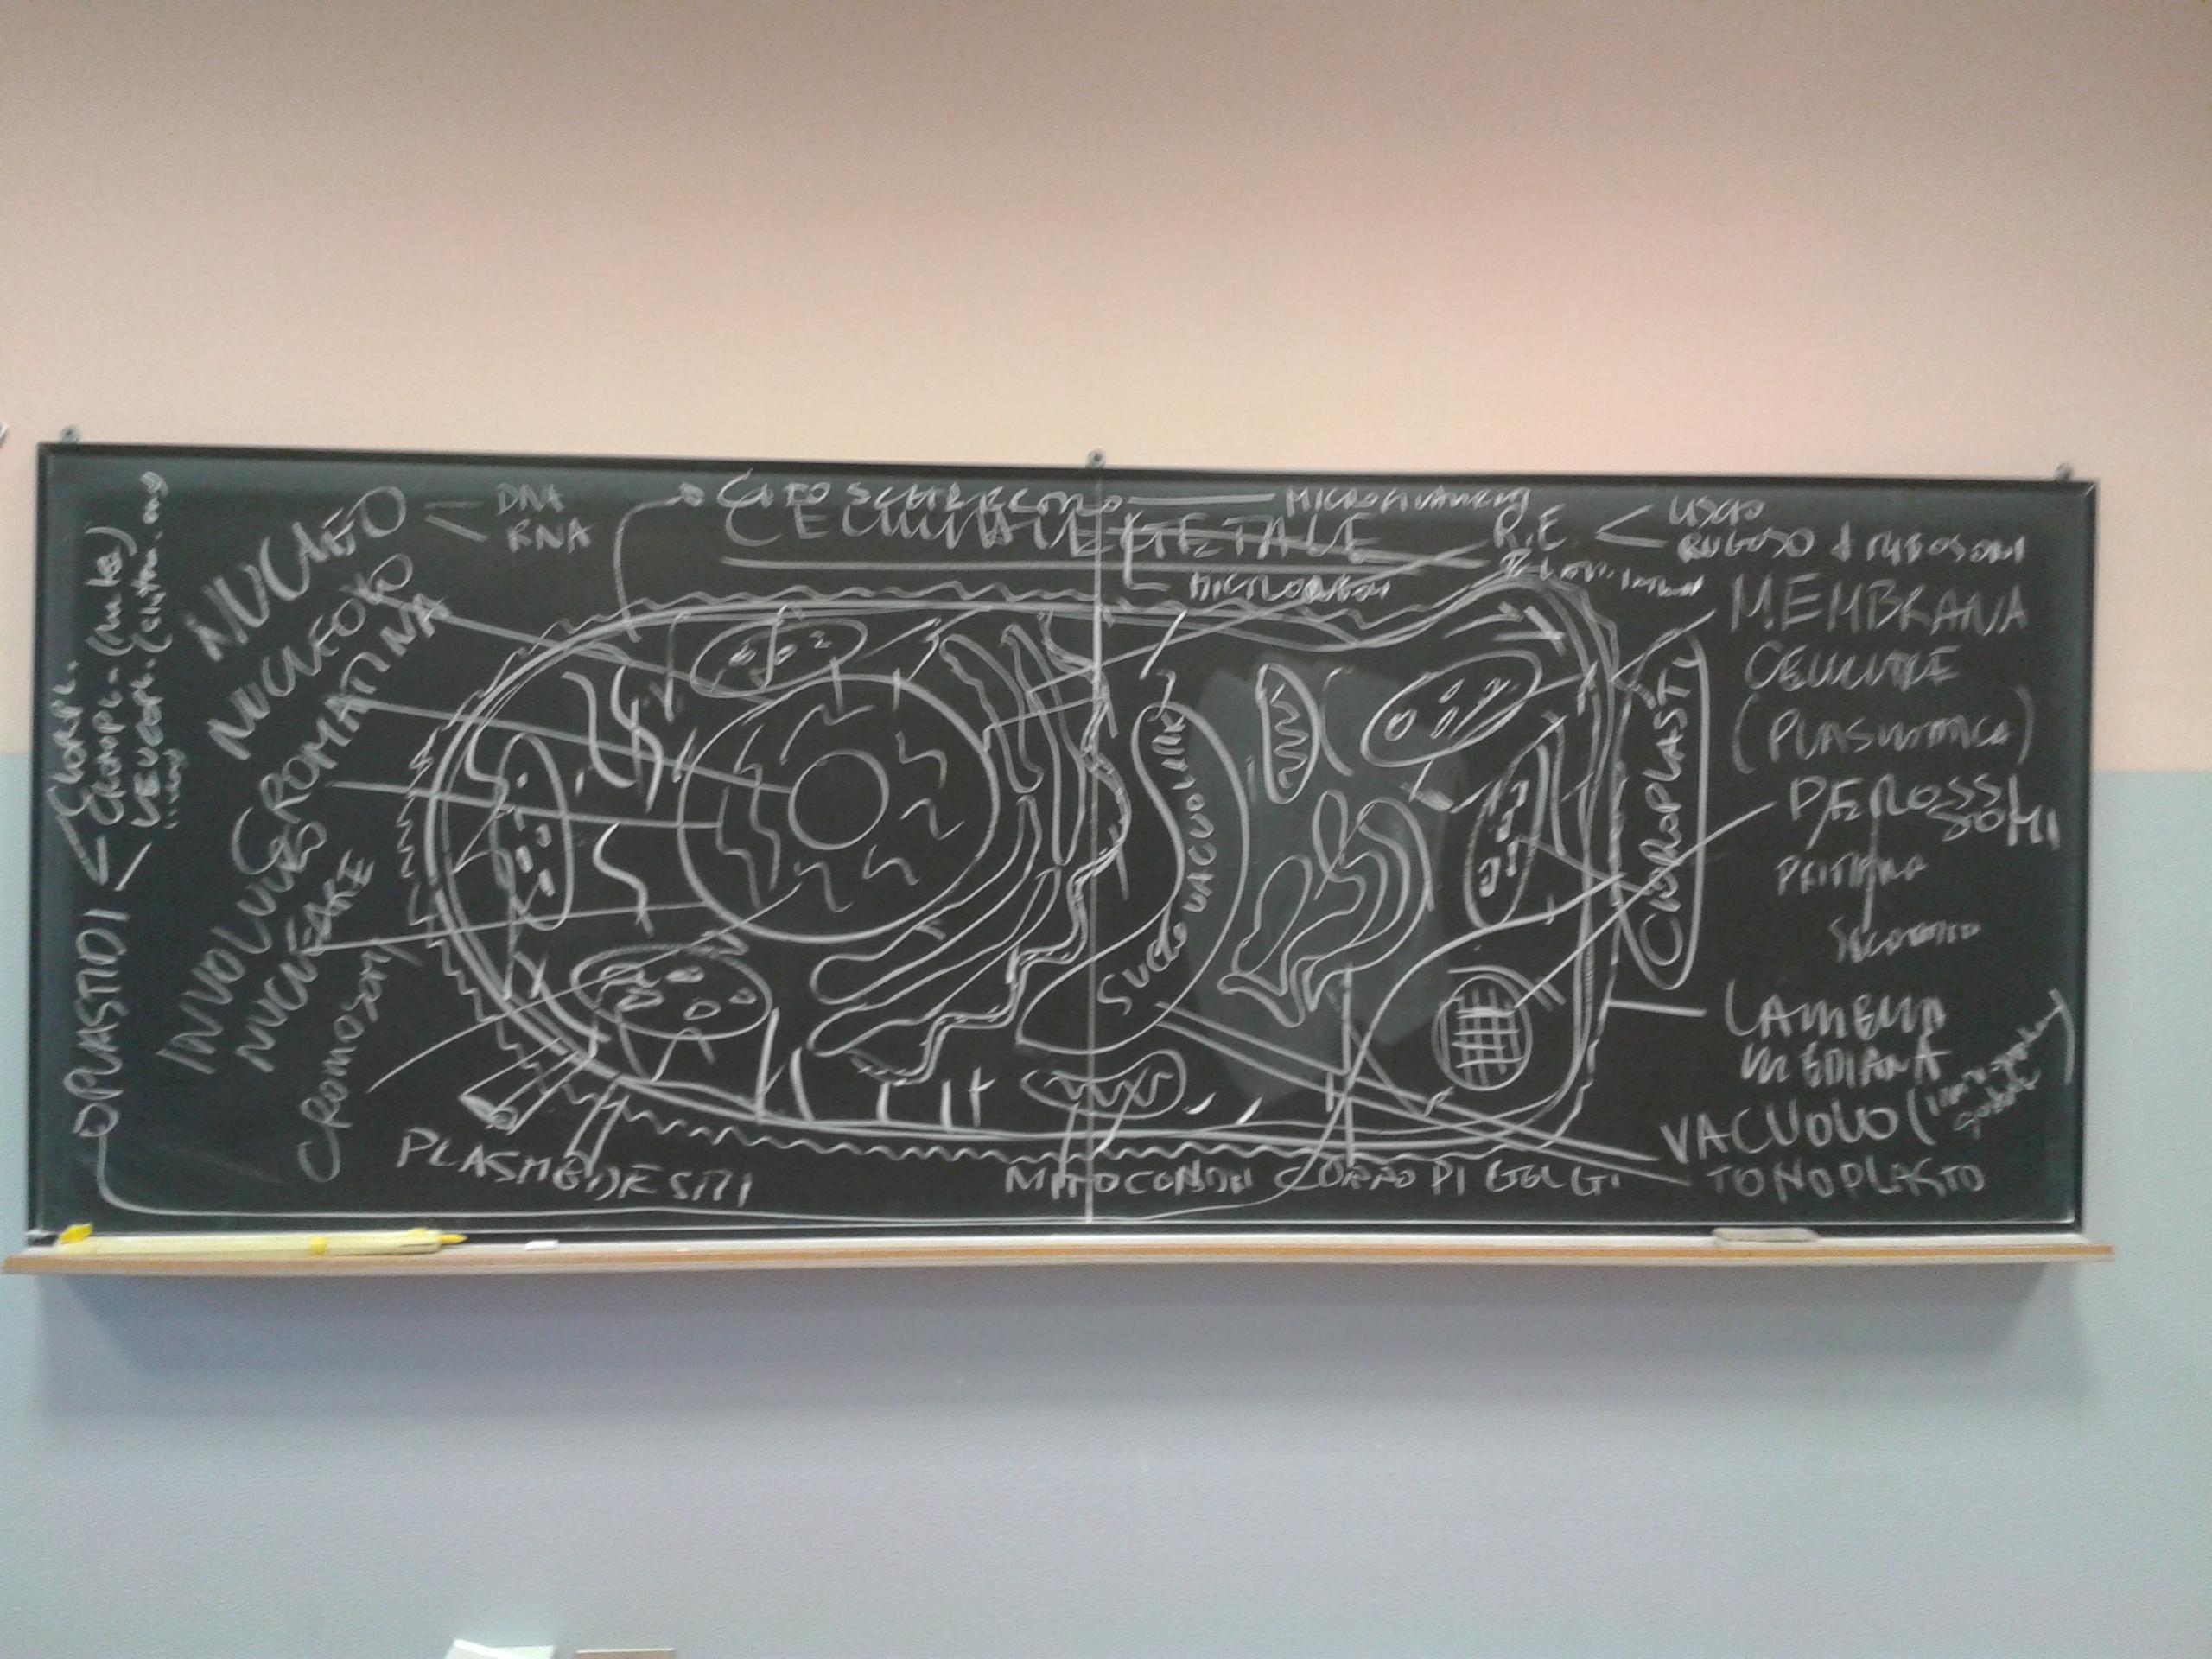 CITOSCHELETRO
MICROFILAMENTI
CELLULA VEGETALE
MICROTUBULI
NUCLEO
DNA
RNA
NUCLEOLO
CROMATINA
INVOLUCRO
NUCLEARE
CROMOSOMI
PLASTIDI
CLOROPL.
CROMOPL.
LEUCOPL.
PLASMODESMI
MITOCONDRI
CORPO DI GOLGI
SUCCO VACUOLARE
R.E
LISCIO
RUGOSO
RIBOSOMI
MEMBRANA
CELLULARE
(PLASMATICA)
CLOROPLASTI
PEROSSI
SOMI
PRIMARIA
SECONDARIA
LAMELLA
MEDIANA
VACUOLO
TONOPLASTO